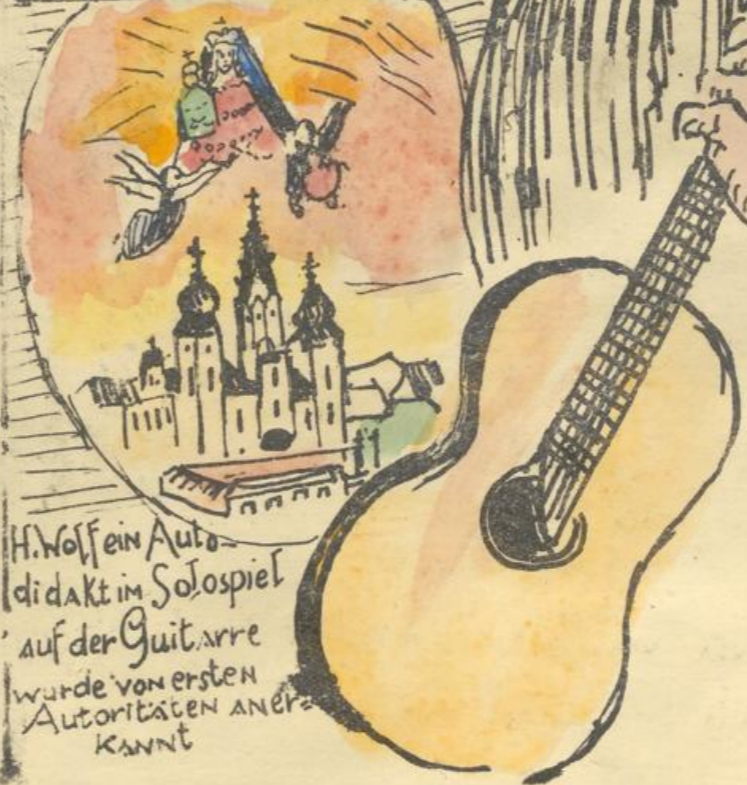 H. Wolf ein Auto-
didakt im Solospiel
auf der Guitarre
wurde von ersten
Autoritäten aner=
kannt